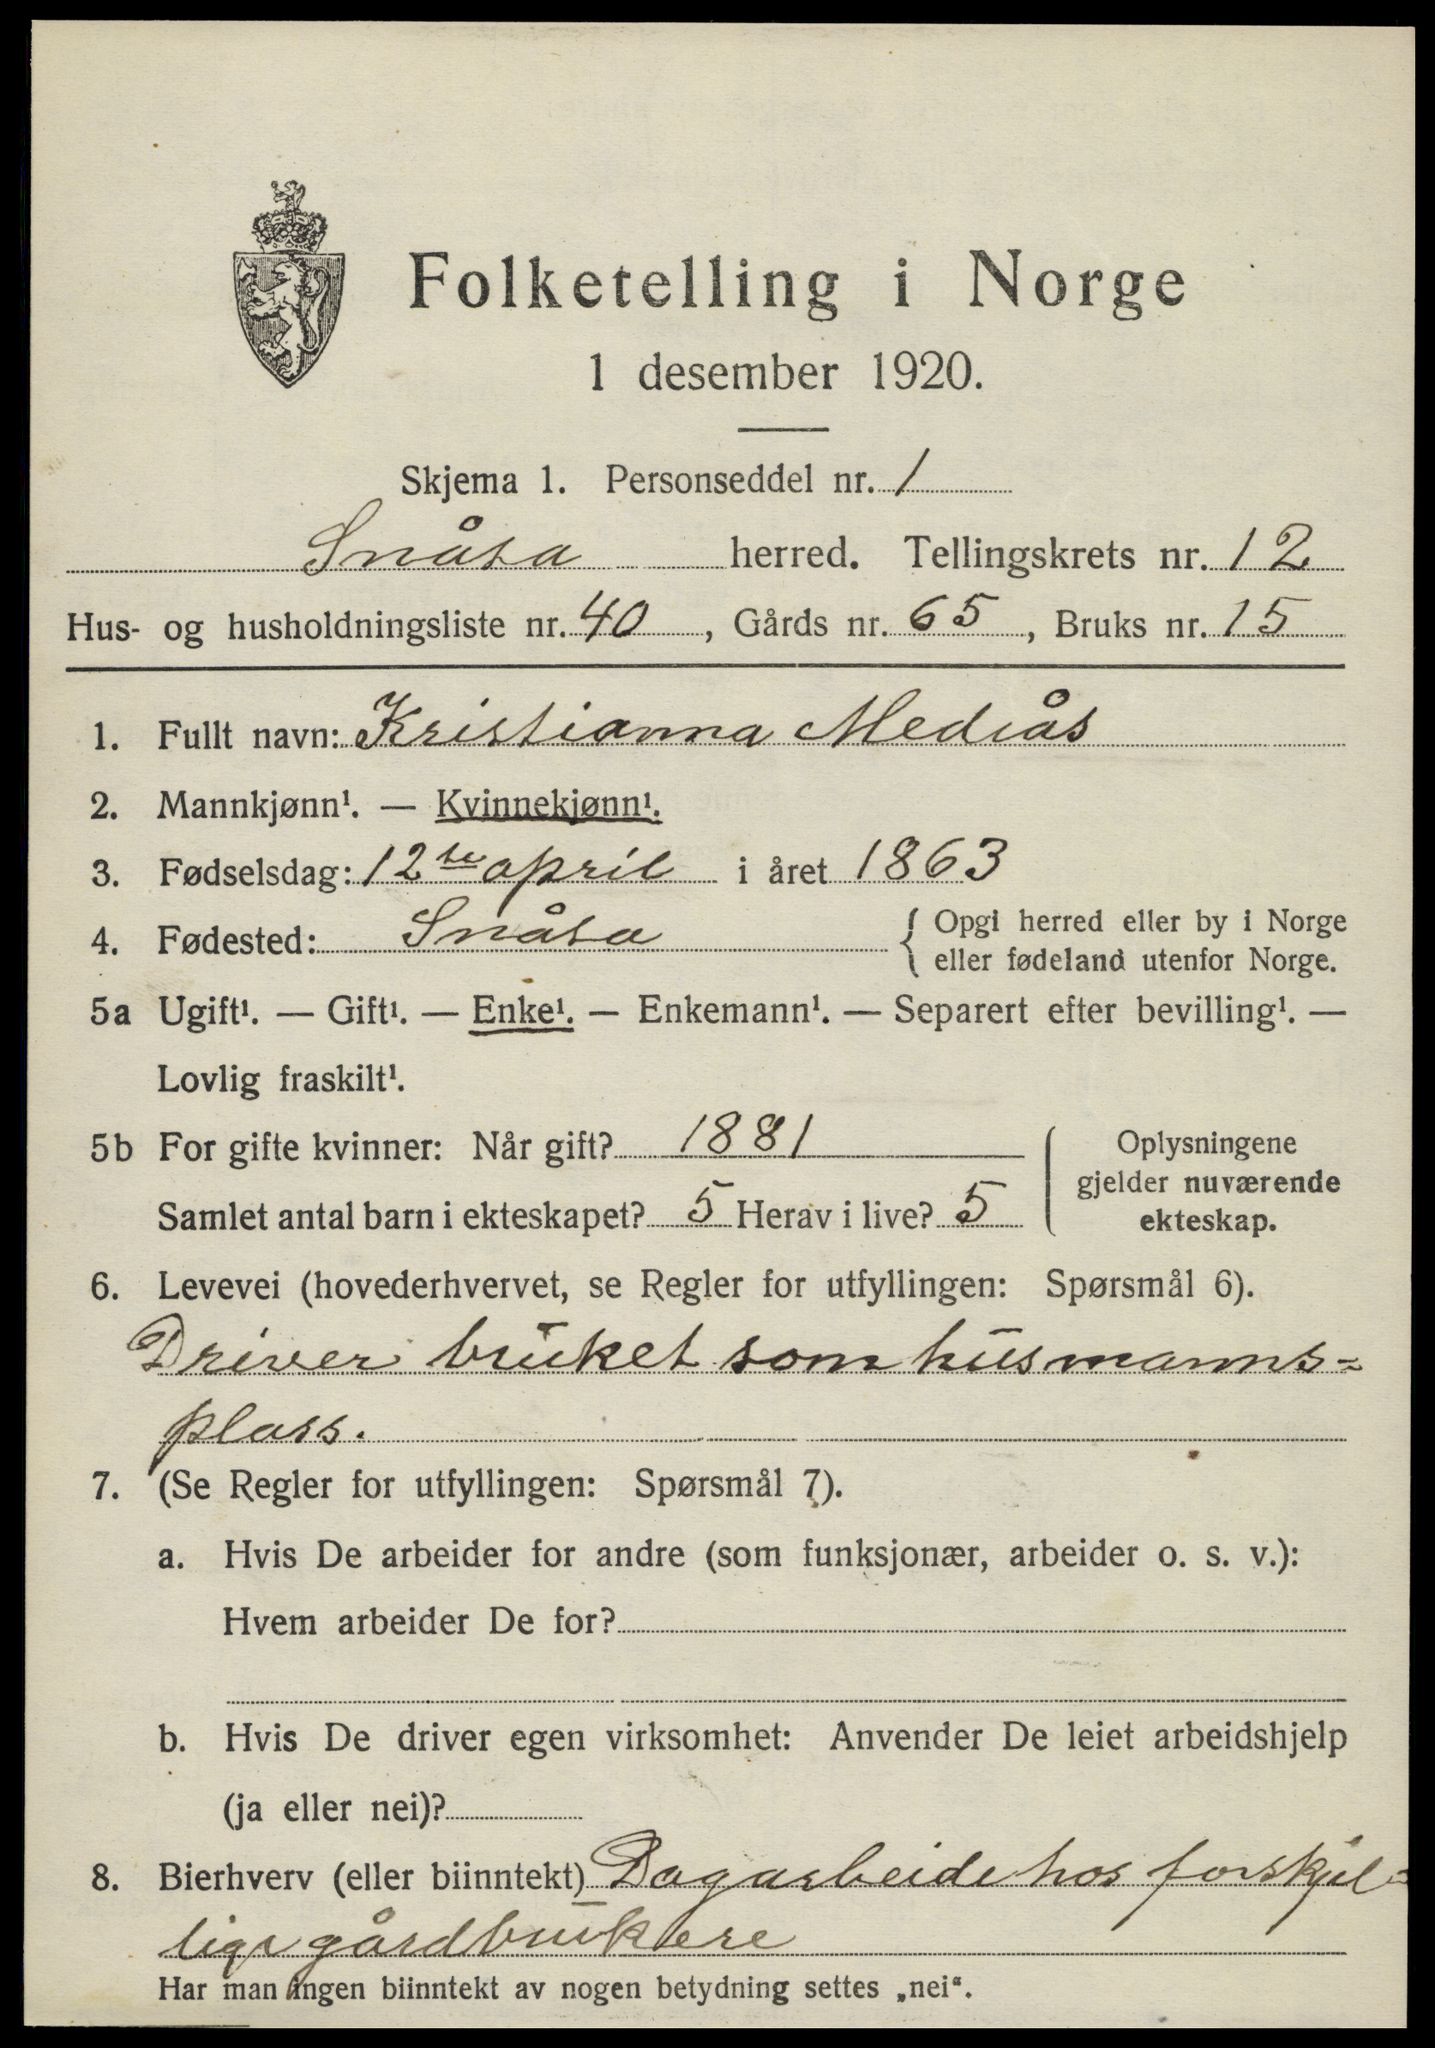 Folketelling i Norge
1 desember 1920.
Skjema 1. Personseddel nr. 1
Snåsa herred. Tellingskrets nr. 12
Hus- og husholdningsliste nr. 40, Gårds nr. 65, Bruks nr. 15
1. Fullt navn: Kristianna Mediås
2. Mannkjønn¹. — Kvinnekjønn¹.
3. Fødselsdag: 12te april i året 1863
4. Fødested: Snåsa { Opgi herred eller by i Norge
eller fødeland utenfor Norge.
5a Ugift¹. — Gift¹. — Enke¹. — Enkemann¹. — Separert efter bevilling¹. —
Lovlig fraskilt¹.
5b For gifte kvinner: Når gift? 1881
Samlet antal barn i ekteskapet? 5 Herav i live? 5
Oplysningene
gjelder nuværende
ekteskap.
6. Levevei (hovederhvervet, se Regler for utfyllingen: Spørsmål 6).
Driver bruket som husmanns-
plass.
7. (Se Regler for utfyllingen: Spørsmål 7).
a. Hvis De arbeider for andre (som funksjonær, arbeider o. s. v.):
Hvem arbeider De for?
b. Hvis De driver egen virksomhet: Anvender De leiet arbeidshjelp
(ja eller nei)?
8. Bierhverv (eller biinntekt) Dagarbeide hos forskjel-
lige gårdbrukere
Har man ingen biinntekt av nogen betydning settes „nei“.